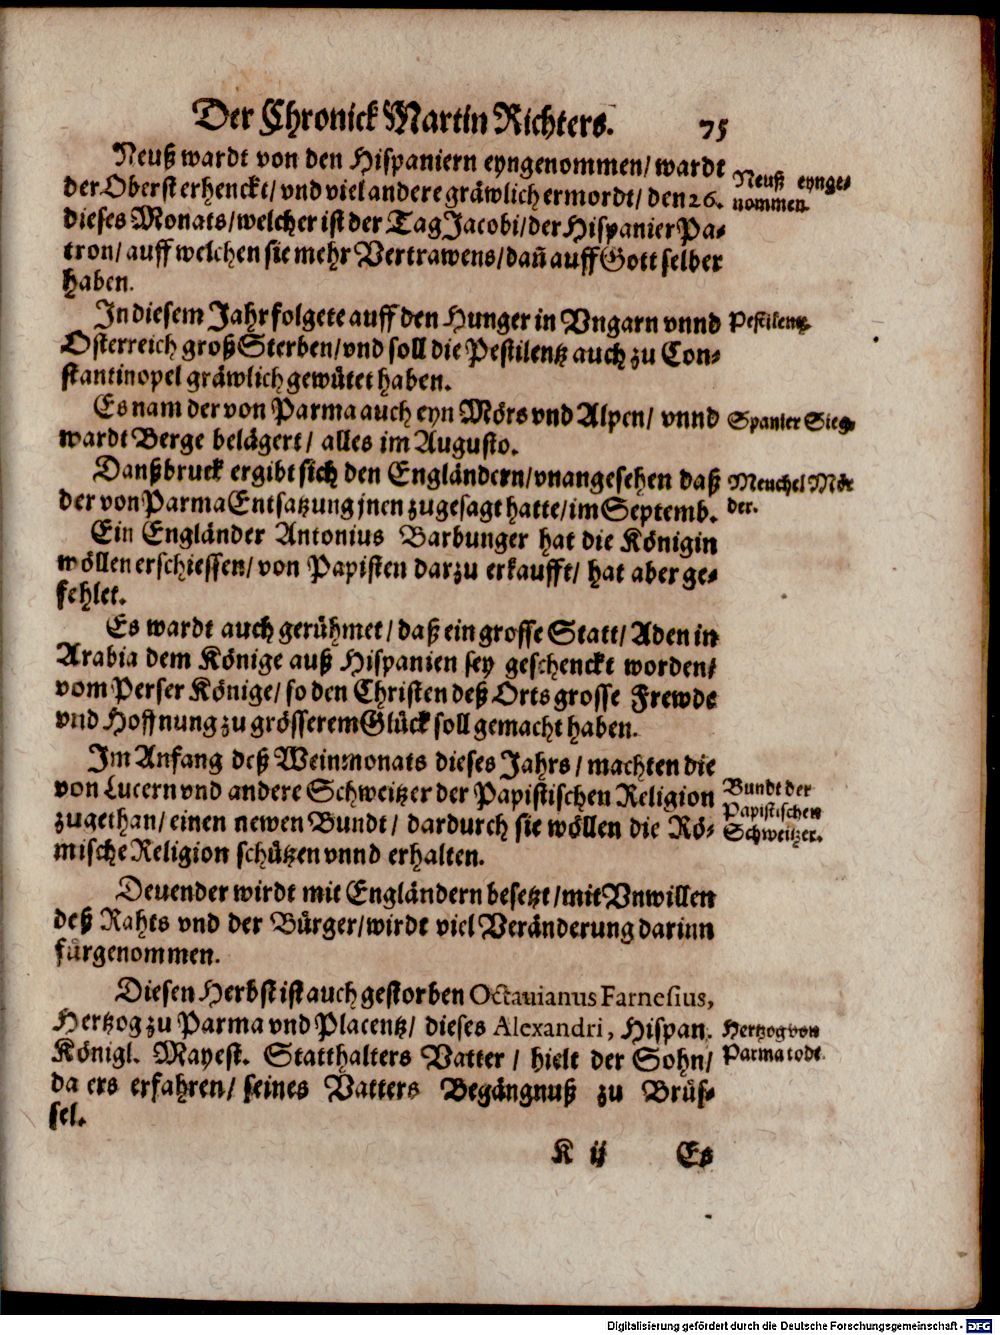 Der Chronick Martin Richters. 75
Neuß wardt von den Hispaniern eyngenommen/ wardt
der Oberst erhenckt/ vnd viel andere gräwlich ermordt/ den 26.
dieses Monats/ welcher ist der Tag Jacobi/ der Hispanier Pa-
tron/ auff welchen sie mehr Vertrawens/ dañ auff Gott selber
haben.
Neuß eynge-
nommen.
In diesem Jahr folgete auff den Hunger in Vngarn vnnd
Osterreich groß Sterben/ vnd soll die Pestilentz auch zu Con-
stantinopel gräwlich gewütet haben.
Pestilentz.
Es nam der von Parma auch eyn Mörs vnd Alpen/ vnnd
wardt Berge belägert/ alles im Augusto.
Spanier Sieg.
Danßbruck ergibt sich den Engländern/ vnangesehen daß
der von Parma Entsatzung jnen zugesagt hatte/ im Septemb.
Ein Engländer Antonius Barbunger hat die Königin
wöllen erschiessen/ von Papisten darzu erkaufft/ hat aber ge-
fehlet.
Meuchel Mör
der.
Es wardt auch gerühmet/ daß ein grosse Statt/ Aden in
Arabia dem Könige auß Hispanien sey geschenckt worden/
vom Perser Könige/ so den Christen deß Orts grosse Frewde
vnd Hoffnung zu grösserem Glück soll gemacht haben.
Im Anfang deß Weinmonats dieses Jahrs/ machten die
von Lucern vnd andere Schweitzer der Papistischen Religion
zugethan/ einen newen Bundt/ dardurch sie wöllen die Rö-
mische Religion schützen vnnd erhalten.
Bundt der
Papistischen
Schweitzer.
Deuender wirdt mit Engländern besetzt/ mit Vnwillen
deß Rahts vnd der Bürger/ wirdt viel Veränderung darinn
fürgenommen.
Diesen Herbst ist auch gestorben Octauianus Farnesius,
Hertzog zu Parma vnd Placentz/ dieses Alexandri, Hispan.
Königl. Mayest. Statthalters Vatter/ hielt der Sohn/
da ers erfahren/ seines Vatters Begängnuß zu Brüs-
sel.
Hertzog von
Parma todt.
K ij Es
Digitalisierung gefördert durch die Deutsche Forschungsgemeinschaft - DFG